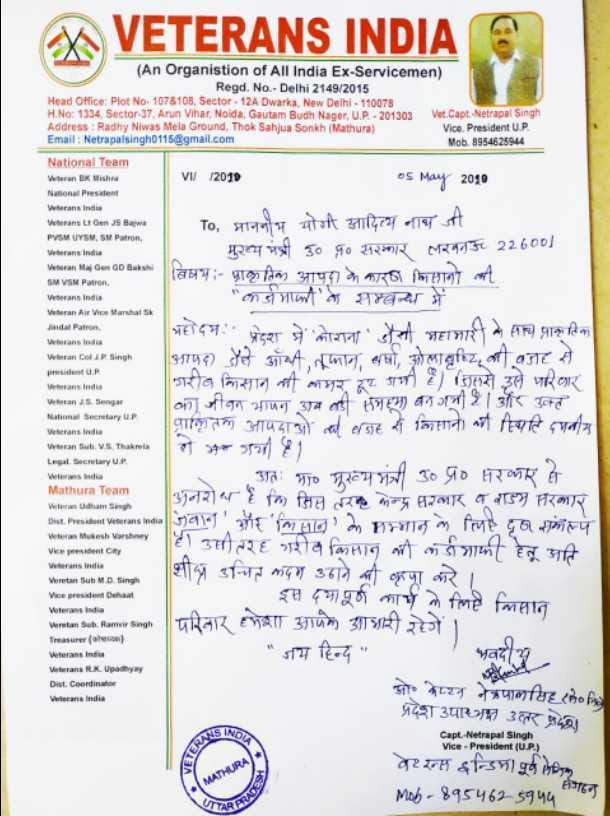 VETERANS INDIA
(An Organistion of All India Ex-Servicemen)
Regd. No.- Delhi 2149/2015
Head Office: Plot No- 107&108, Sector - 12A Dwarka, New Delhi - 110078
H.No: 1334, Sector-37, Arun Vihar, Noida, Gautam Budh Nager, U.P. - 201303
Address : Radhy Niwas Mela Ground, Thok Sahjua Sonkh (Mathura)
Email : Netrapalsingh0115@gmail.com
Vet.Capt.-Netrapal Singh
Vice. President U.P.
Mob. 8954625944
National Team
Veteran BK Mishra
National President
Veterans India
Veterans Lt Gen JS Bajwa
PVSM UYSM, SM Patron,
Veterans India
Veteran Maj Gen GD Bakshi
SM VSM Patron,
Veterans India
Veteran Air Vice Marshal Sk
Jindal Patron,
Veterans India
Veteran Col J.P. Singh
president U.P.
Veterans India
Veteran J.S. Sengar
National Secretary U.P.
Veterans India
Veteran Sub. V.S. Thakrela
Legal. Secretary U.P.
Veterans India
Mathura Team
Veteran Udham Singh
Dist. President Veterans India
Veteran Mukesh Varshney
Vice president City
Veterans India
Veretan Sub M.D. Singh
Vice president Dehaat
Veterans India
Veretan Sub. Ramvir Singh
Treasurer (कोषाध्यक्ष)
Veterans India
Veterans R.K. Upadhyay
Dist. Coordinator
Veterans India
VI/ /2019
05 May 2019
To, माननीय योगी आदित्य नाथ जी
मुख्य मंत्री उ० प्र० सरकार लखनऊ 226001
विषय:- प्राकृतिक आपदा के कारण किसानो की
"कर्जमाफी" के सम्बन्ध में
महोदय:- प्रदेश में 'कोराना' जैसी महामारी के साथ प्राकृतिक
आपदा जैसे आँधी, तूफान, वर्षा, ओलावृष्टि की वजह से
गरीब किसान की कमर टूट गयी है। जिससे उसे परिवार
का जीवन यापन अब बडी समस्या बन गयी है। और उक्त
प्राकृतिक आपदाओ की वजह से किसानो की स्थिति दयनीय
हो गयी है।
अतः मा० मुख्य मंत्री उ० प्र० सरकार से
अनरोध है कि जिस तरह केन्द्र सरकार व राज्य सरकार
'जवान' और 'किसान' के सम्मान के लिए दृढ संकल्प
है। उसी तरह गरीब किसान की कर्ज माफी हेतू अति
शीघ्र उचित कदम उठाने की कृपा करे।
इस दयापूर्ण कार्य के लिए किसान
परिवार हमेशा आपके आभारी रहेगें।
"जय हिन्द"
भवदीय
ओ० केप्टन नेत्रपाल सिंह
प्रदेश उपाध्यक्ष उत्तर प्रदेश
Capt.-Netrapal Singh
Vice - President (U.P.)
वेटरन्स इन्डिया पूर्व सैनिक
संगठन
Mob - 8954625944
VETERANS INDIA
MATHURA
UTTAR PRADESH